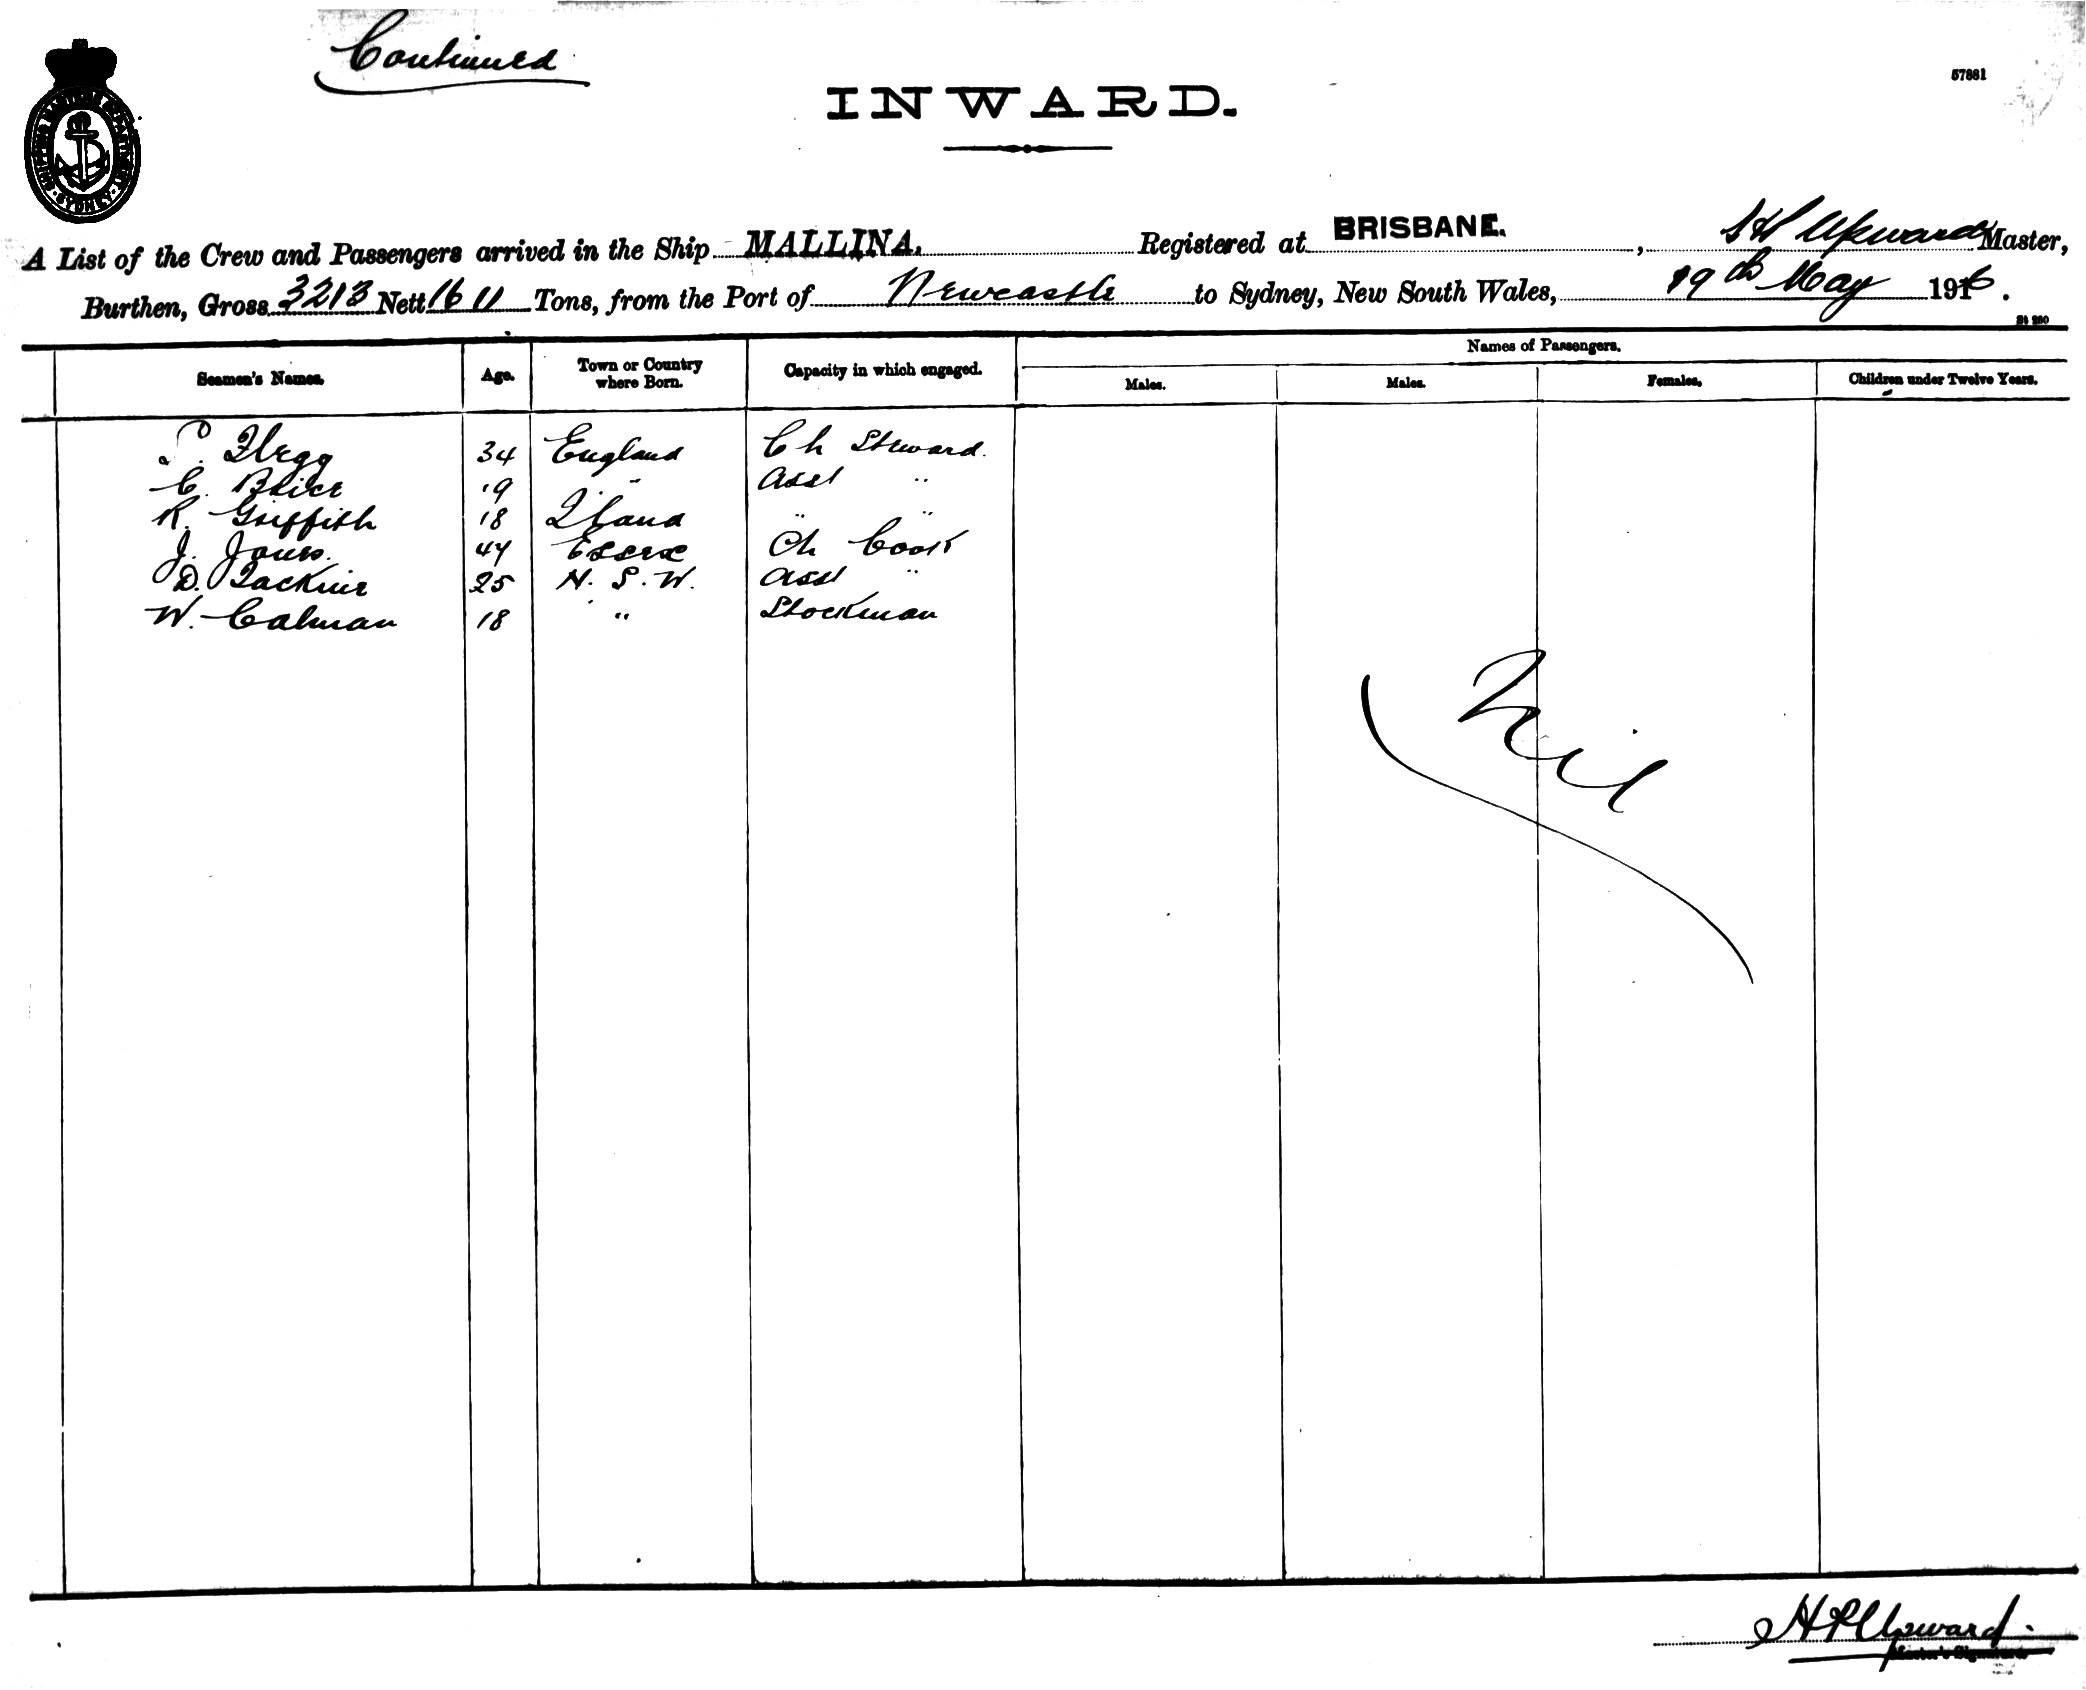 Continued
57881
INWARD.
SHIPPING MASTERS DEPARTMENT SYDNEY
A List of the Crew and Passengers arrived in the Ship MALLINA. Registered at BRISBANE. , Upward Master,
Burthen, Gross 3213 Nett 1611 Tons, from the Port of Newcastle to Sydney, New South Wales, 19th May 1916.
St 280
Seamen's Names. Age. Town or Country where Born. Capacity in which engaged. Names of Passengers.
Males. Males. Females. Children under Twelve Years.
Flegg 34 England Ch Steward.
C. Brice 19 " " Asst "
R. Griffith 18 Qland " "
J. Jones. 44 Essex Ch Cook
D. 25 N.S.W. Asst "
W. Calman 18 " Stockman
Nil
H P Upward.
Master's Signature.